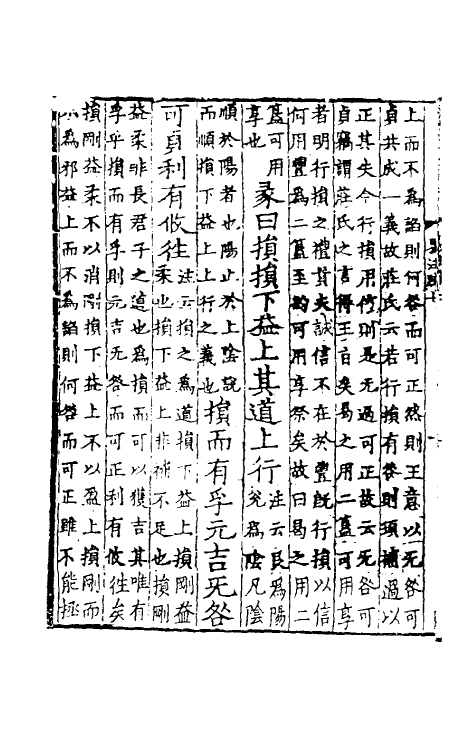 上而不為諂則何咎而可正然則王意以无咎可
貞共成一義故莊氏云若行損有咎則須補過以
正其失今行損用信則是无過可正故云无咎可
貞竊謂莊氏之言得王旨矣曷之用二簋可用享
者明行損之禮貴夫誠信不在於豐既行損以信
何用豐為二簋至約可用享祭矣故曰曷之用二
簋可用
享也
彖曰損損下益上其道上行
注云艮為陽
兌為陰凡陰
順於陽者也陽止於上陰說
而順損下益上上行之義也
損而有孚元吉无咎
可貞利有攸往
注云損之為道損下益上損剛益
柔也損下益上非補不足也損剛
益柔非長君子之道也為損而可以獲吉其唯有
孚乎損而有孚則元吉无咎而可正利有攸往矣
損剛益柔不以消剛損下益上不以盈上損剛而
不為邪益上而不為諂則何咎而可正雖不能拯